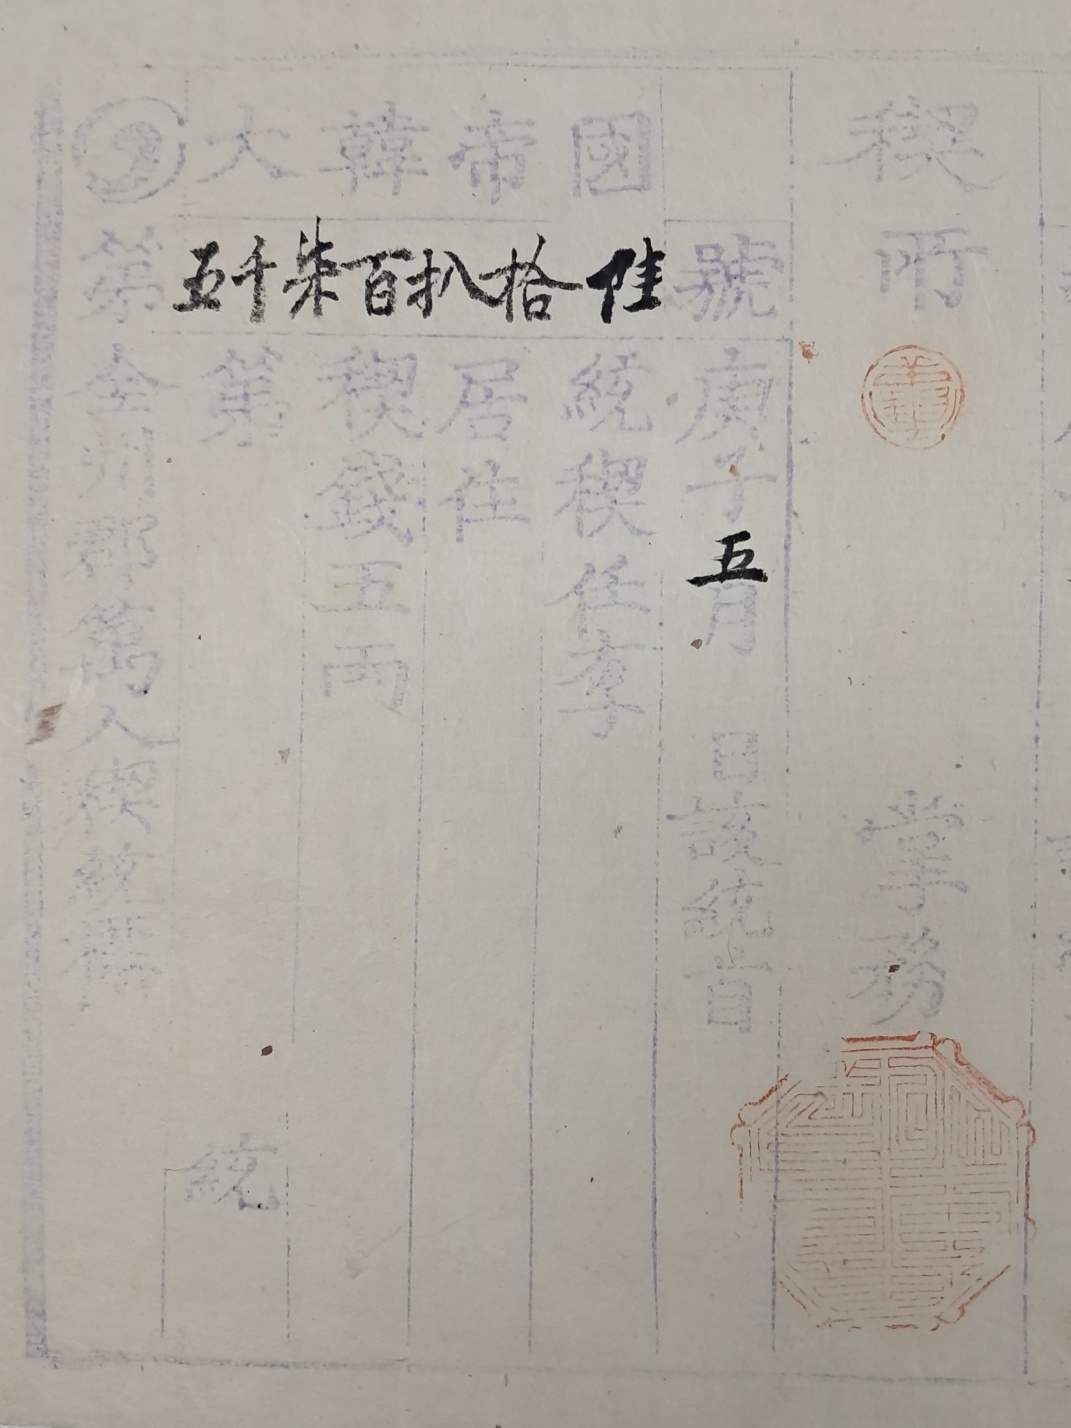 大韓帝國
第五千柒百扒拾號
全州郡萬人稧統標
第 統
稧錢五両
居住
統稧任李
庚子五月 日該統首
稧所 掌務